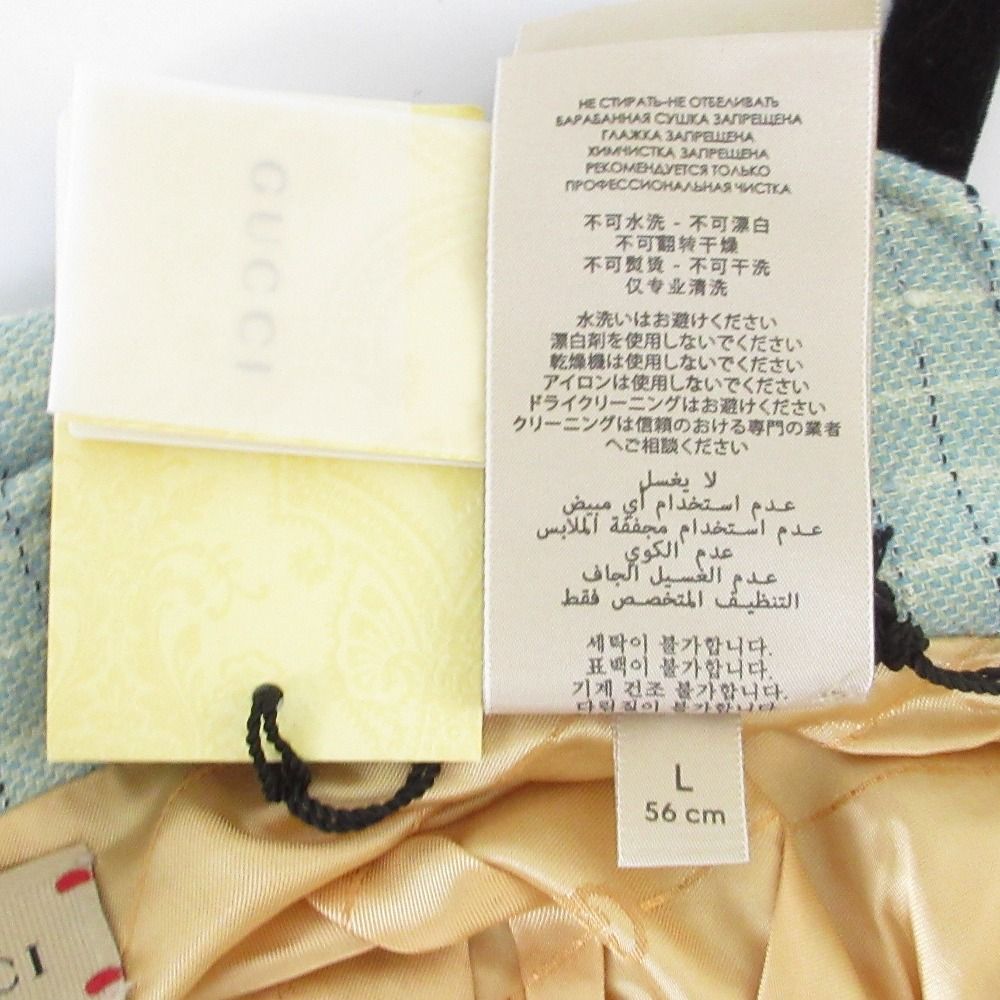 GUCCI
НЕ СТИРАТЬ-НЕ ОТБЕЛИВАТЬ
БАРАБАННАЯ СУШКА ЗАПРЕЩЕНА
ГЛАЖКА ЗАПРЕЩЕНА
ХИМЧИСТКА ЗАПРЕЩЕНА
РЕКОМЕНДУЕТСЯ ТОЛЬКО
ПРОФЕССИОНАЛЬНАЯ ЧИСТКА
不可水洗 - 不可漂白
不可翻转干燥
不可熨烫 - 不可干洗
仅专业清洗
水洗いはお避けください
漂白剤を使用しないでください
乾燥機は使用しないでください
アイロンは使用しないでください
ドライクリーニングはお避けください
クリーニングは信頼のおける専門の業者
へご相談ください
لا يغسل
عدم استخدام أي مبيض
عدم استخدام مجففة الملابس
عدم الكوي
عدم الغسيل الجاف
التنظيف المتخصص فقط
세탁이 불가합니다.
표백이 불가합니다.
기계 건조 불가합니다.
다림질이 불가합니다.
L
56 cm
CI